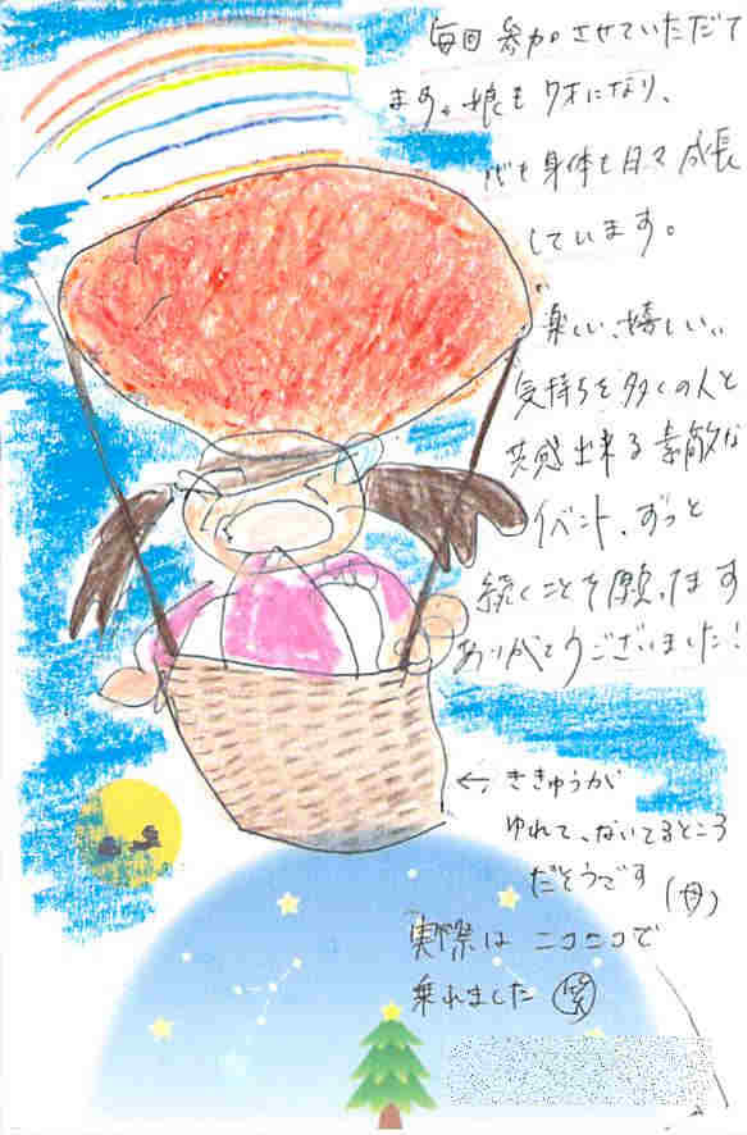 毎回参加させていただいて
ます。娘も7才になり、
心も身体も日々成長
しています。
楽しい、嬉しい、
気持ちを多くの人と
共感出来る素敵な
イベント、ずっと
続くことを願ってます
ありがとうございました!
← ききゅうが
ゆれて、ないてるところ
だそうです(母)
実際はニコニコで
乗れました(笑)